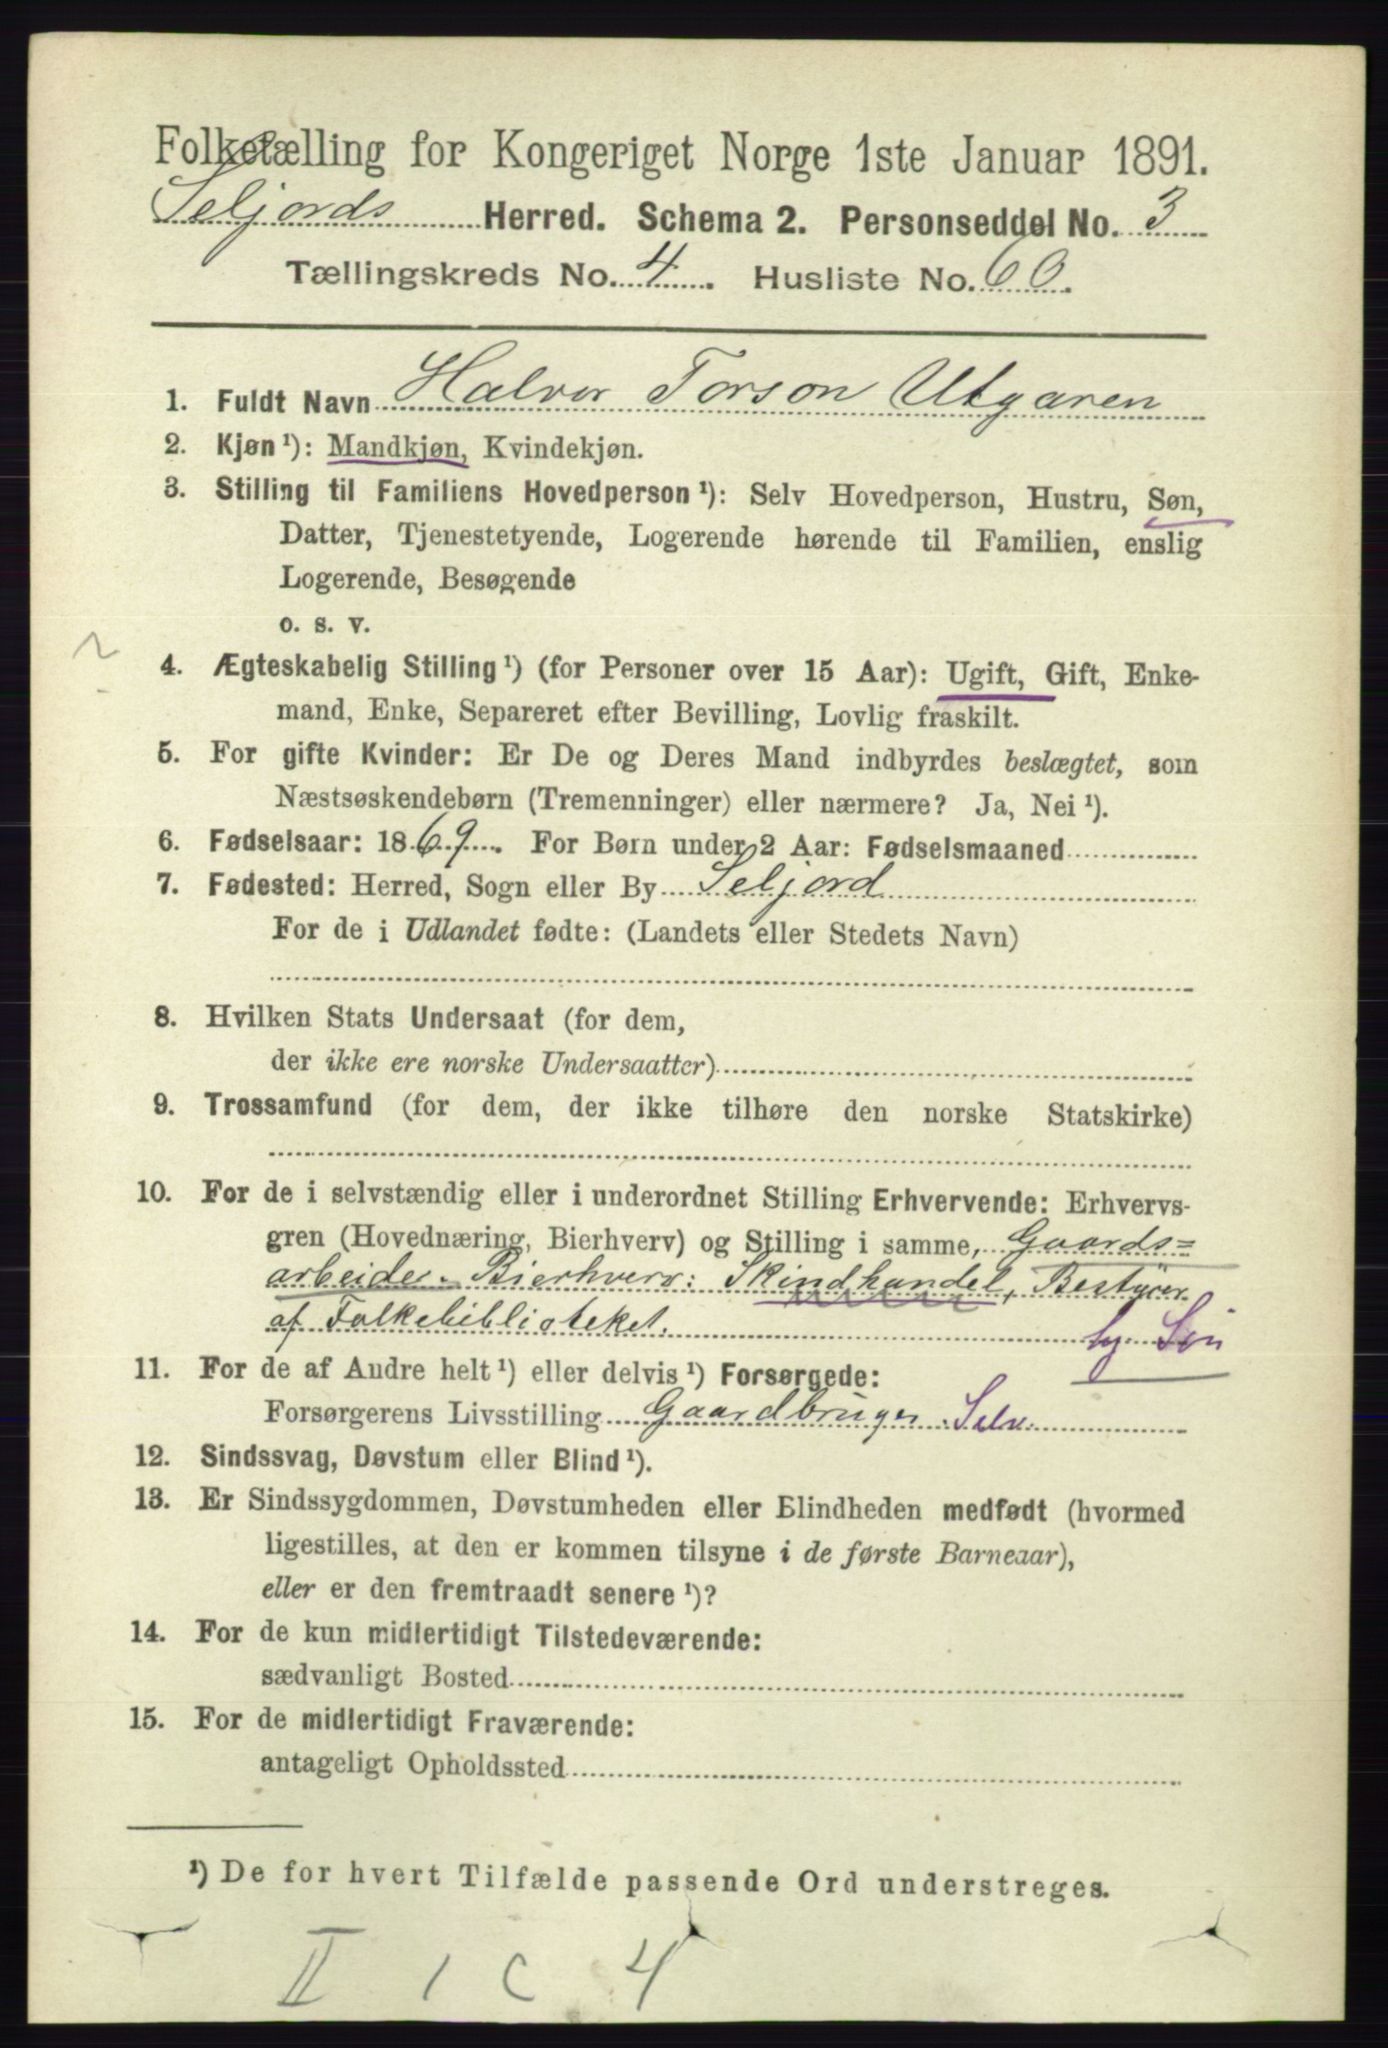 Folketælling for Kongeriget Norge 1ste Januar 1891.
Seljords Herred. Schema 2. Personseddel No. 3
Tællingskreds No. 4. Husliste No. 60.
1. Fuldt Navn Halvor Torson Utgaren
2. Kjøn ¹): Mandkjøn, Kvindekjøn.
3. Stilling til Familiens Hovedperson ¹): Selv Hovedperson, Hustru, Søn,
Datter, Tjenestetyende, Logerende hørende til Familien, enslig
Logerende, Besøgende
o. s. v.
4. Ægteskabelig Stilling ¹) (for Personer over 15 Aar): Ugift, Gift, Enke-
mand, Enke, Separeret efter Bevilling, Lovlig fraskilt.
5. For gifte Kvinder: Er De og Deres Mand indbyrdes beslægtet, som
Næstsøskendebørn (Tremenninger) eller nærmere? Ja, Nei ¹).
6. Fødselsaar: 1869. For Børn under 2 Aar: Fødselsmaaned
7. Fødested: Herred, Sogn eller By Seljord
For de i Udlandet fødte: (Landets eller Stedets Navn)
8. Hvilken Stats Undersaat (for dem,
der ikke ere norske Undersaatter)
9. Trossamfund (for dem, der ikke tilhøre den norske Statskirke)
10. For de i selvstændig eller i underordnet Stilling Erhvervende: Erhvervs-
gren (Hovednæring, Bierhverv) og Stilling i samme, Gaards=
arbeide. Bierhverv: Skindhandel, Bestyrer
af Folkebiblioteket.
11. For de af Andre helt ¹) eller delvis ¹) Forsørgede:
Forsørgerens Livsstilling Gaardbruger. Selv.
12. Sindssvag, Døvstum eller Blind ¹).
13. Er Sindssygdommen, Døvstumheden eller Blindheden medfødt (hvormed
ligestilles, at den er kommen tilsyne i de første Barneaar),
eller er den fremtraadt senere ¹)?
14. For de kun midlertidigt Tilstedeværende:
sædvanligt Bosted
15. For de midlertidigt Fraværende:
antageligt Opholdssted
¹) De for hvert Tilfælde passende Ord understreges.
II 1 C 4